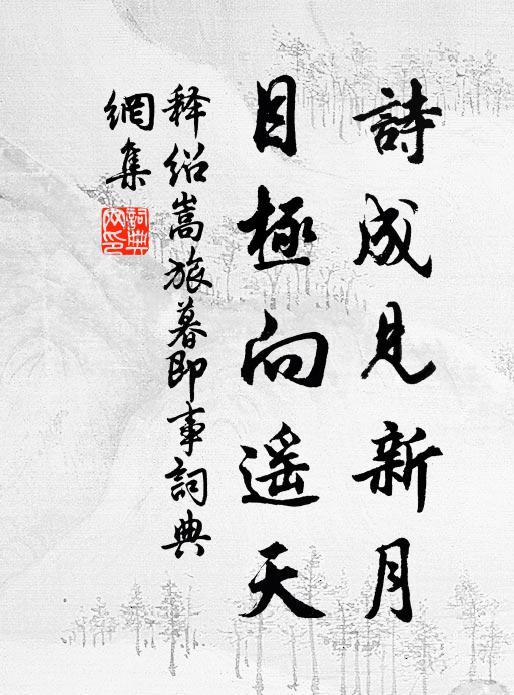 詩成見新月
目極向遥天
释绍嵩旅暮即事詞典
網集
詞典
网印